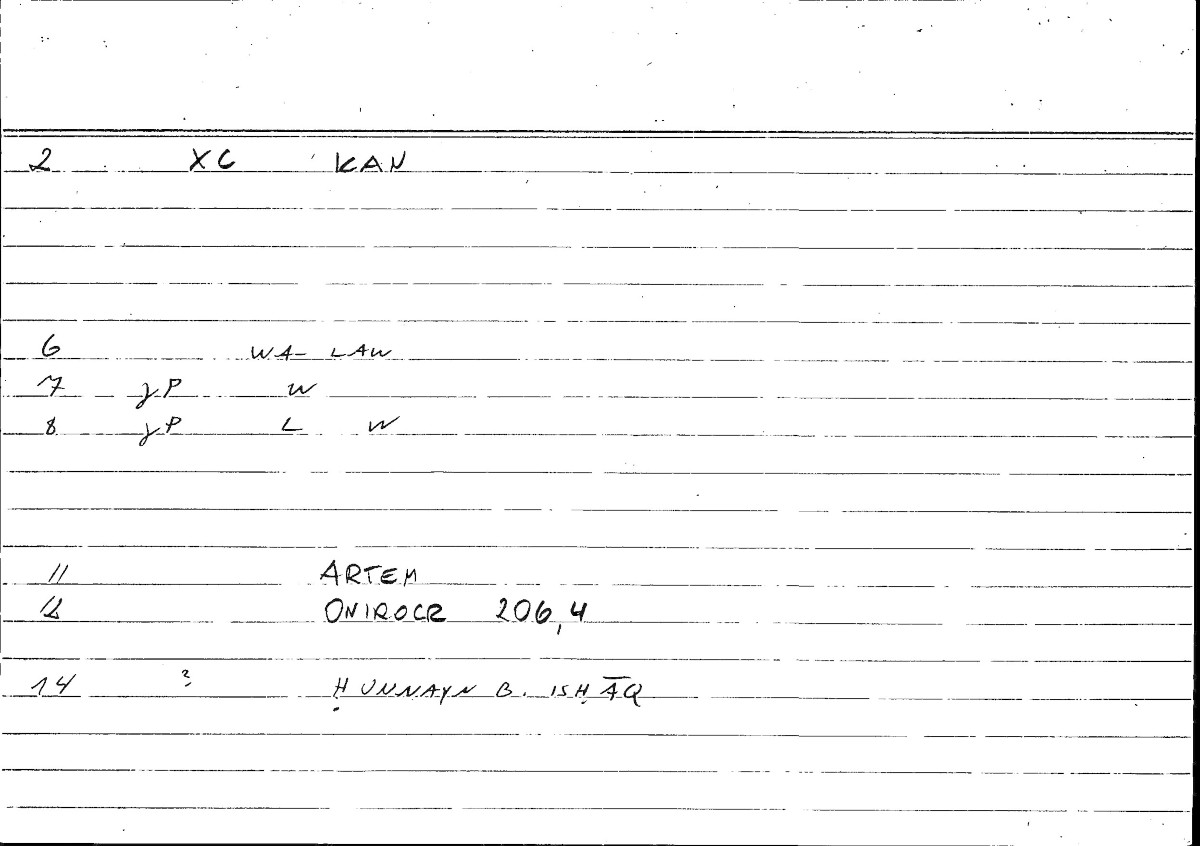 2 XC KAN
6 WA- LAW
7 γP W
8 γP L W
11 ARTEM
12 ONIROCR 206,4
14 ? ḤUNNAYN B. ISḤĀQ